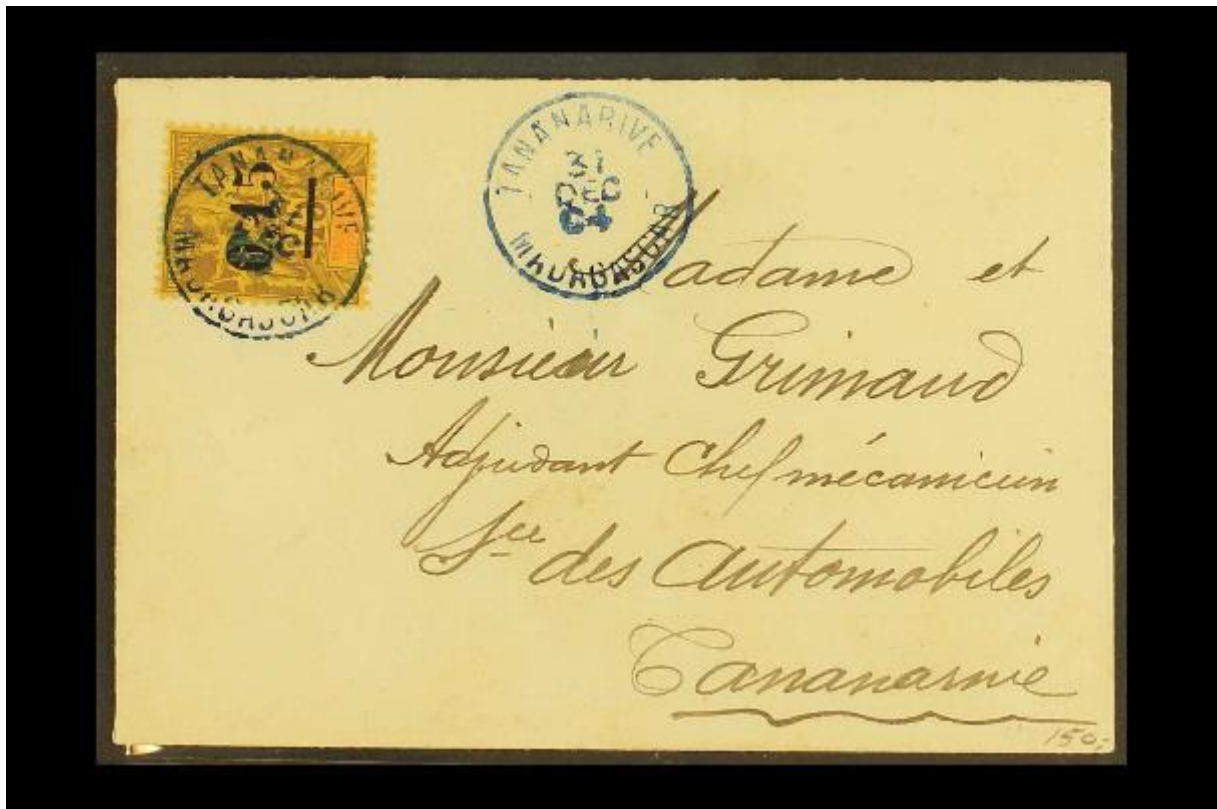 TANANARIVE
31
DEC
04
MADAGASCAR
0,15
MADAGASCAR
Madame et
Monsieur Grimaud
Adjudant Chef mécanicien
Sce des Automobiles
Tananarive
150,-